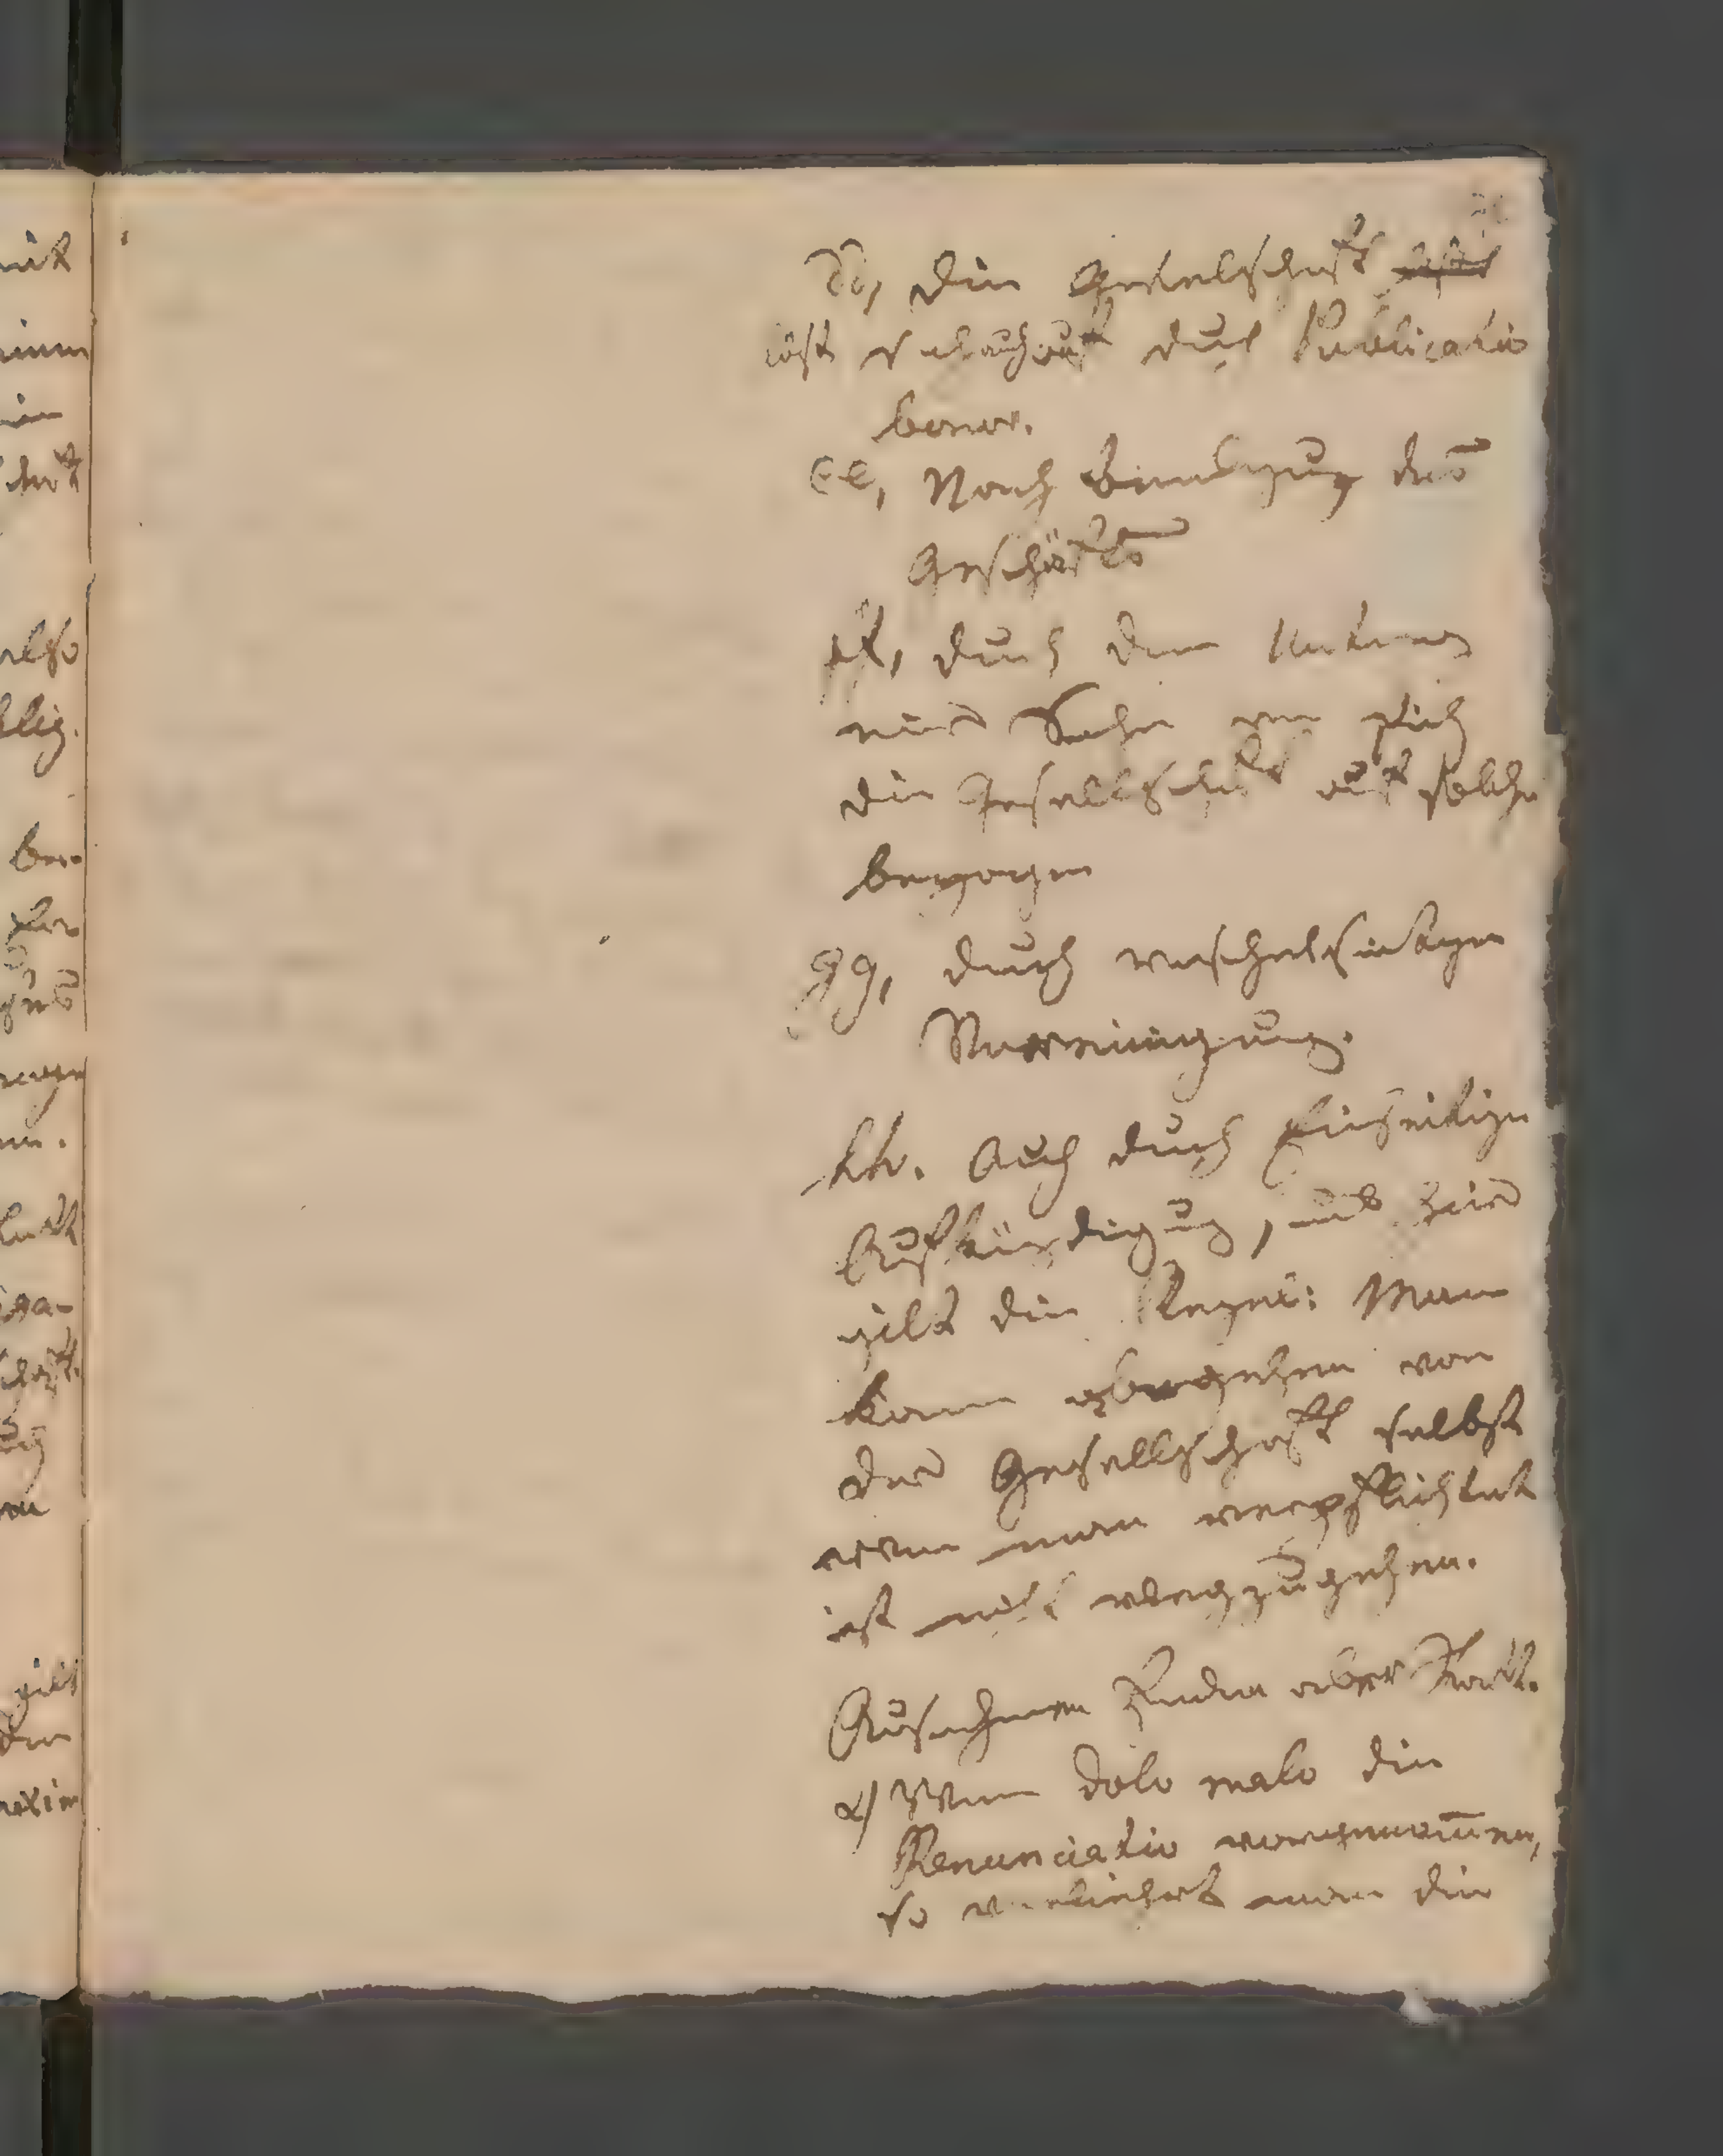 dd, die Geselschaft
löst sich auch auf durch Publicatio
bonor.
ee, Nach Beendigung des
Geschäfts
ff, durch den Untergang
einer Sache wo sich
die Gesellschaft auf solche
bezogen
gg, durch wechselseitige
Vereinigung.
hh. Auch durch Einseitige
Aufkündigung, und hier
gilt die Regel: Man
kann abgehen von
der Gesellschaft selbst
wenn man verpflichtet
ist nicht wegzugehen.
Ausnahmen finden aber statt.
α) Wenn dolo malo die
Renunciatio vorgenommen,
so verliehrt man die